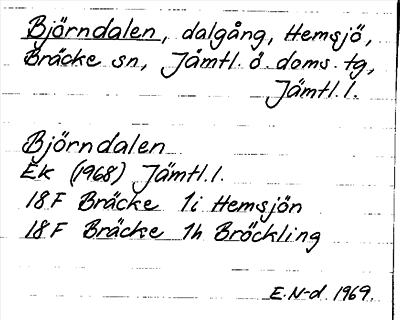 Björndalen, dalgång, Hemsjö,
Bräcke sn, Jämtl. ö. doms. tg,
Jämtl. l.
Björndalen
Ek (1968) Jämtl. l.
18 F Bräcke 1i Hemsjön
18 F Bräcke 1h Bröckling
E. N-d. 1969.